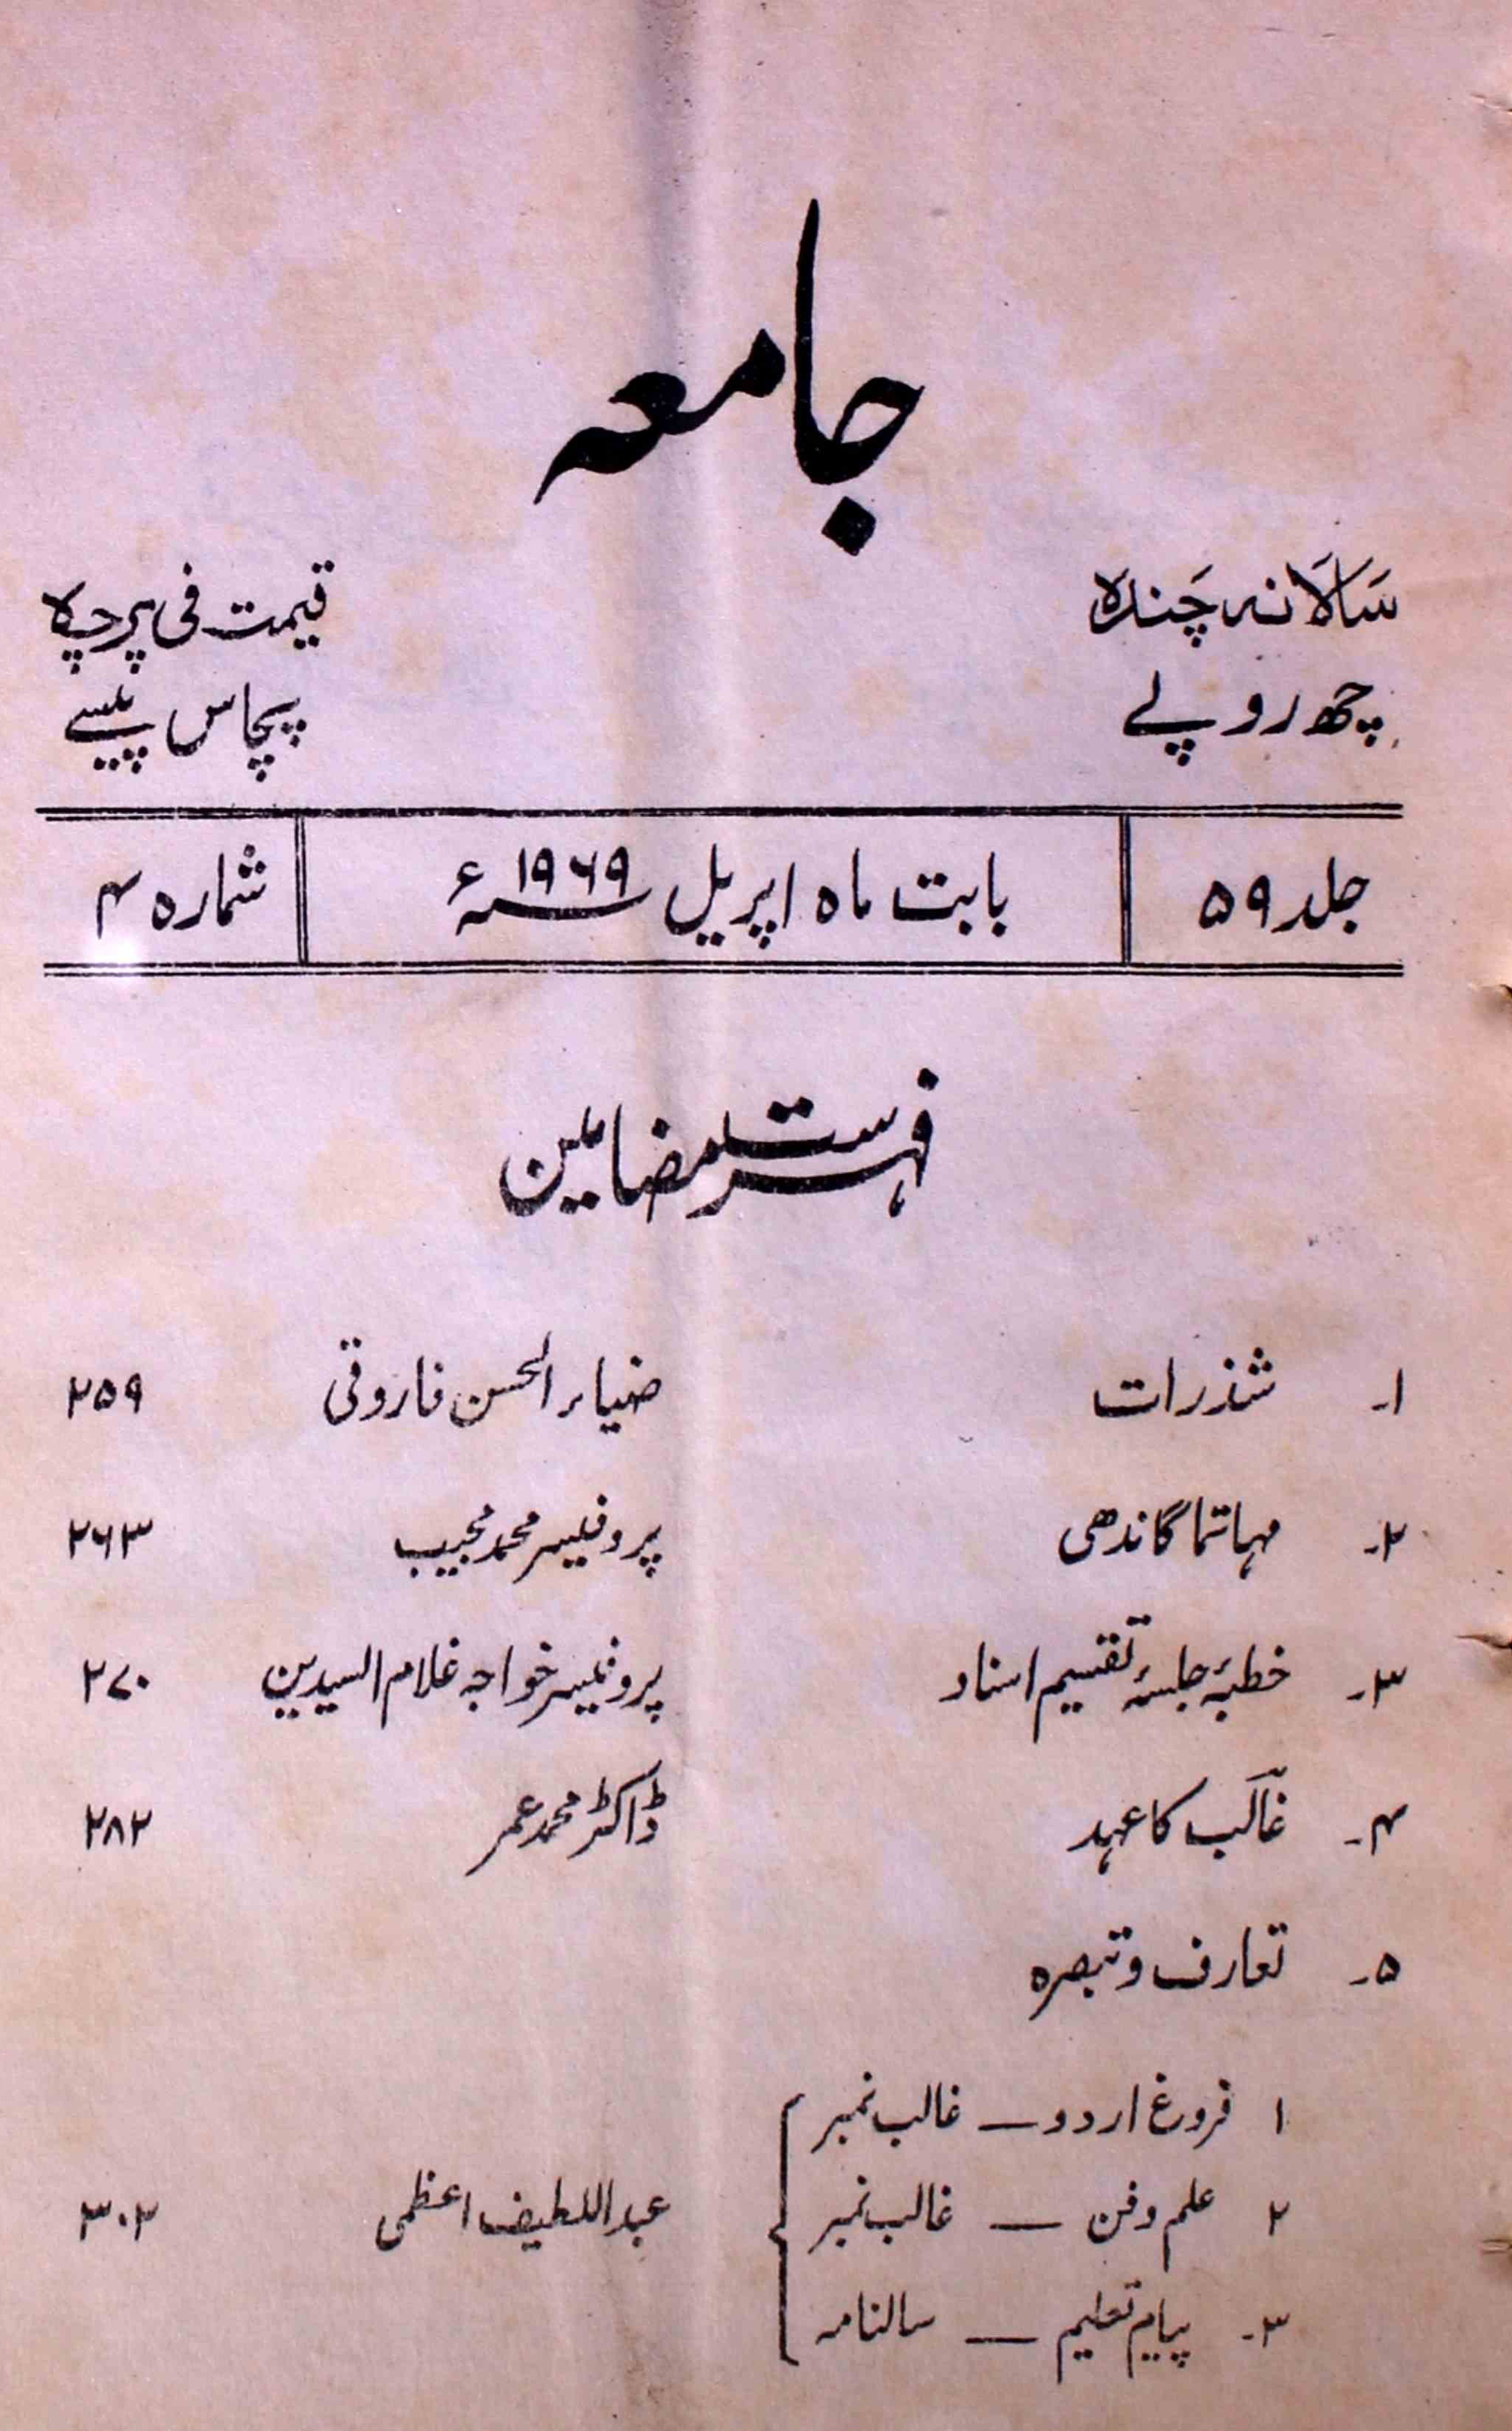 جامعہ
سالانہ چندہ
قیمت فی پرچہ
چھ روپے
پچاس پیسے
جلد ۵۹
بابت ماہ اپریل ۱۹۶۹ء
شمارہ ۴
فہرست مضامین
۱۔ شذرات ضیاء الحسن فاروقی ۲۵۹
۲۔ مہاتما گاندھی پروفیسر محمد مجیب ۲۶۳
۳۔ خطبۂ جلسۂ تقسیم اسناد پروفیسر خواجہ غلام السیدین ۲۷۰
۴۔ غالب کا عہد ڈاکٹر محمد عمر ۲۸۲
۵۔ تعارف و تبصرہ
۱ فروغ اردو — غالب نمبر
۲ علم و فن — غالب نمبر عبداللطیف اعظمی ۳۰۲
۳۔ پیام تعلیم — سالنامہ